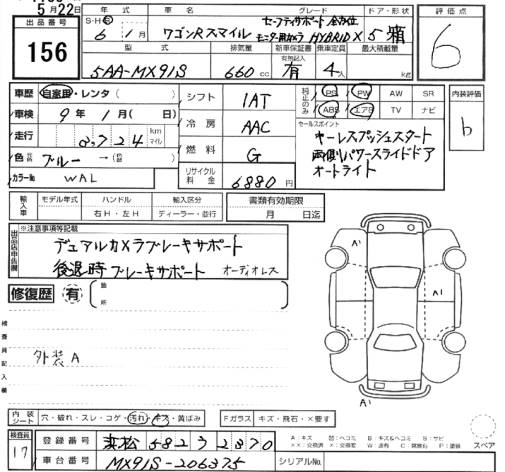 5月22日
出品番号
156
年式 車名 グレード ドア・形状
S・H・R
6年1月 ワゴンRスマイル セーフティサポート 全方位モニター用カメラ HYBRID X 5 箱
型式 排気量 新車保証書 乗車定員 最大積載量
有無記入
5AA-MX91S 660cc 有 4人 kg
評価点
6
車歴 自家用・レンタ( )
車検 9年1月( 日)
走行 2,724 km マイル
色 ブルー →( )
カラーNo WAL
シフト 1AT
冷房 AAC
燃料 G
リサイクル料金 6880円
純正のみ
PS PW AW SR
ABS エアB TV ナビ
セールスポイント
キーレスプッシュスタート
両側パワースライドドア
オートライト
内装評価
b
輸入車 モデル年式 ハンドル 輸入区分
年 右H・左H ディーラー・並行
書類有効期限
月 日迄
出品店申告欄
※注意事項等記載
デュアルカメラブレーキサポート
後退時ブレーキサポート オーディオレス
修復歴 有 箇所
検査員記入欄
外装A
A1
A1
A1
A1
内装シート 穴・破れ・スレ・コゲ・汚れ・キズ・黄ばみ
Fガラス キズ・飛石・×要す
検査員
17
登録番号 浜松 582 る 2870
車台番号 MX91S-206375
シリアルNo.
スペア